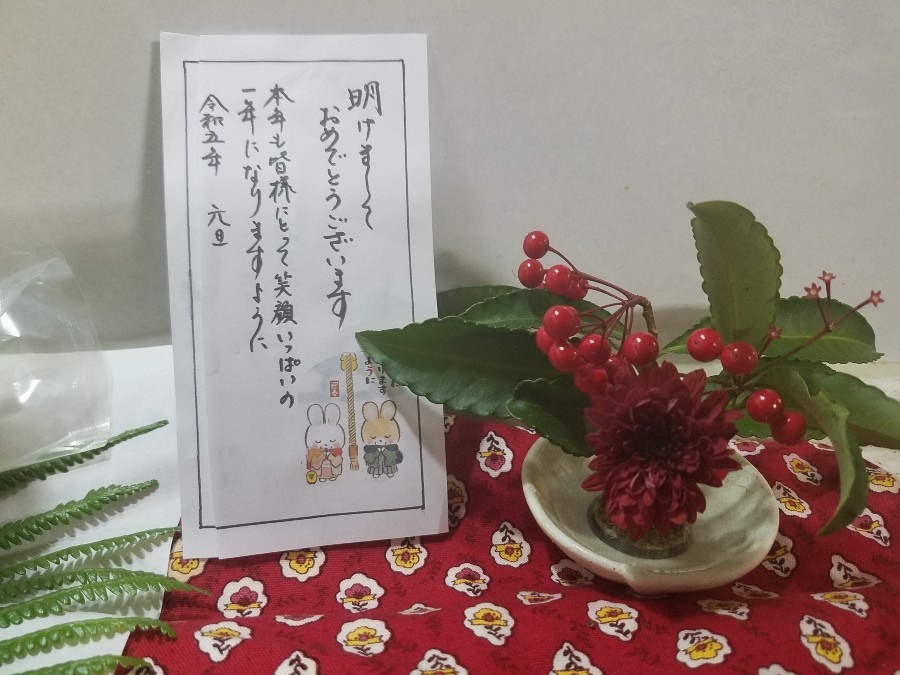 明けまして
おめでとうございます
本年も皆様にとって笑顔いっぱいの
一年になりますように
令和五年 元旦
ります
ように